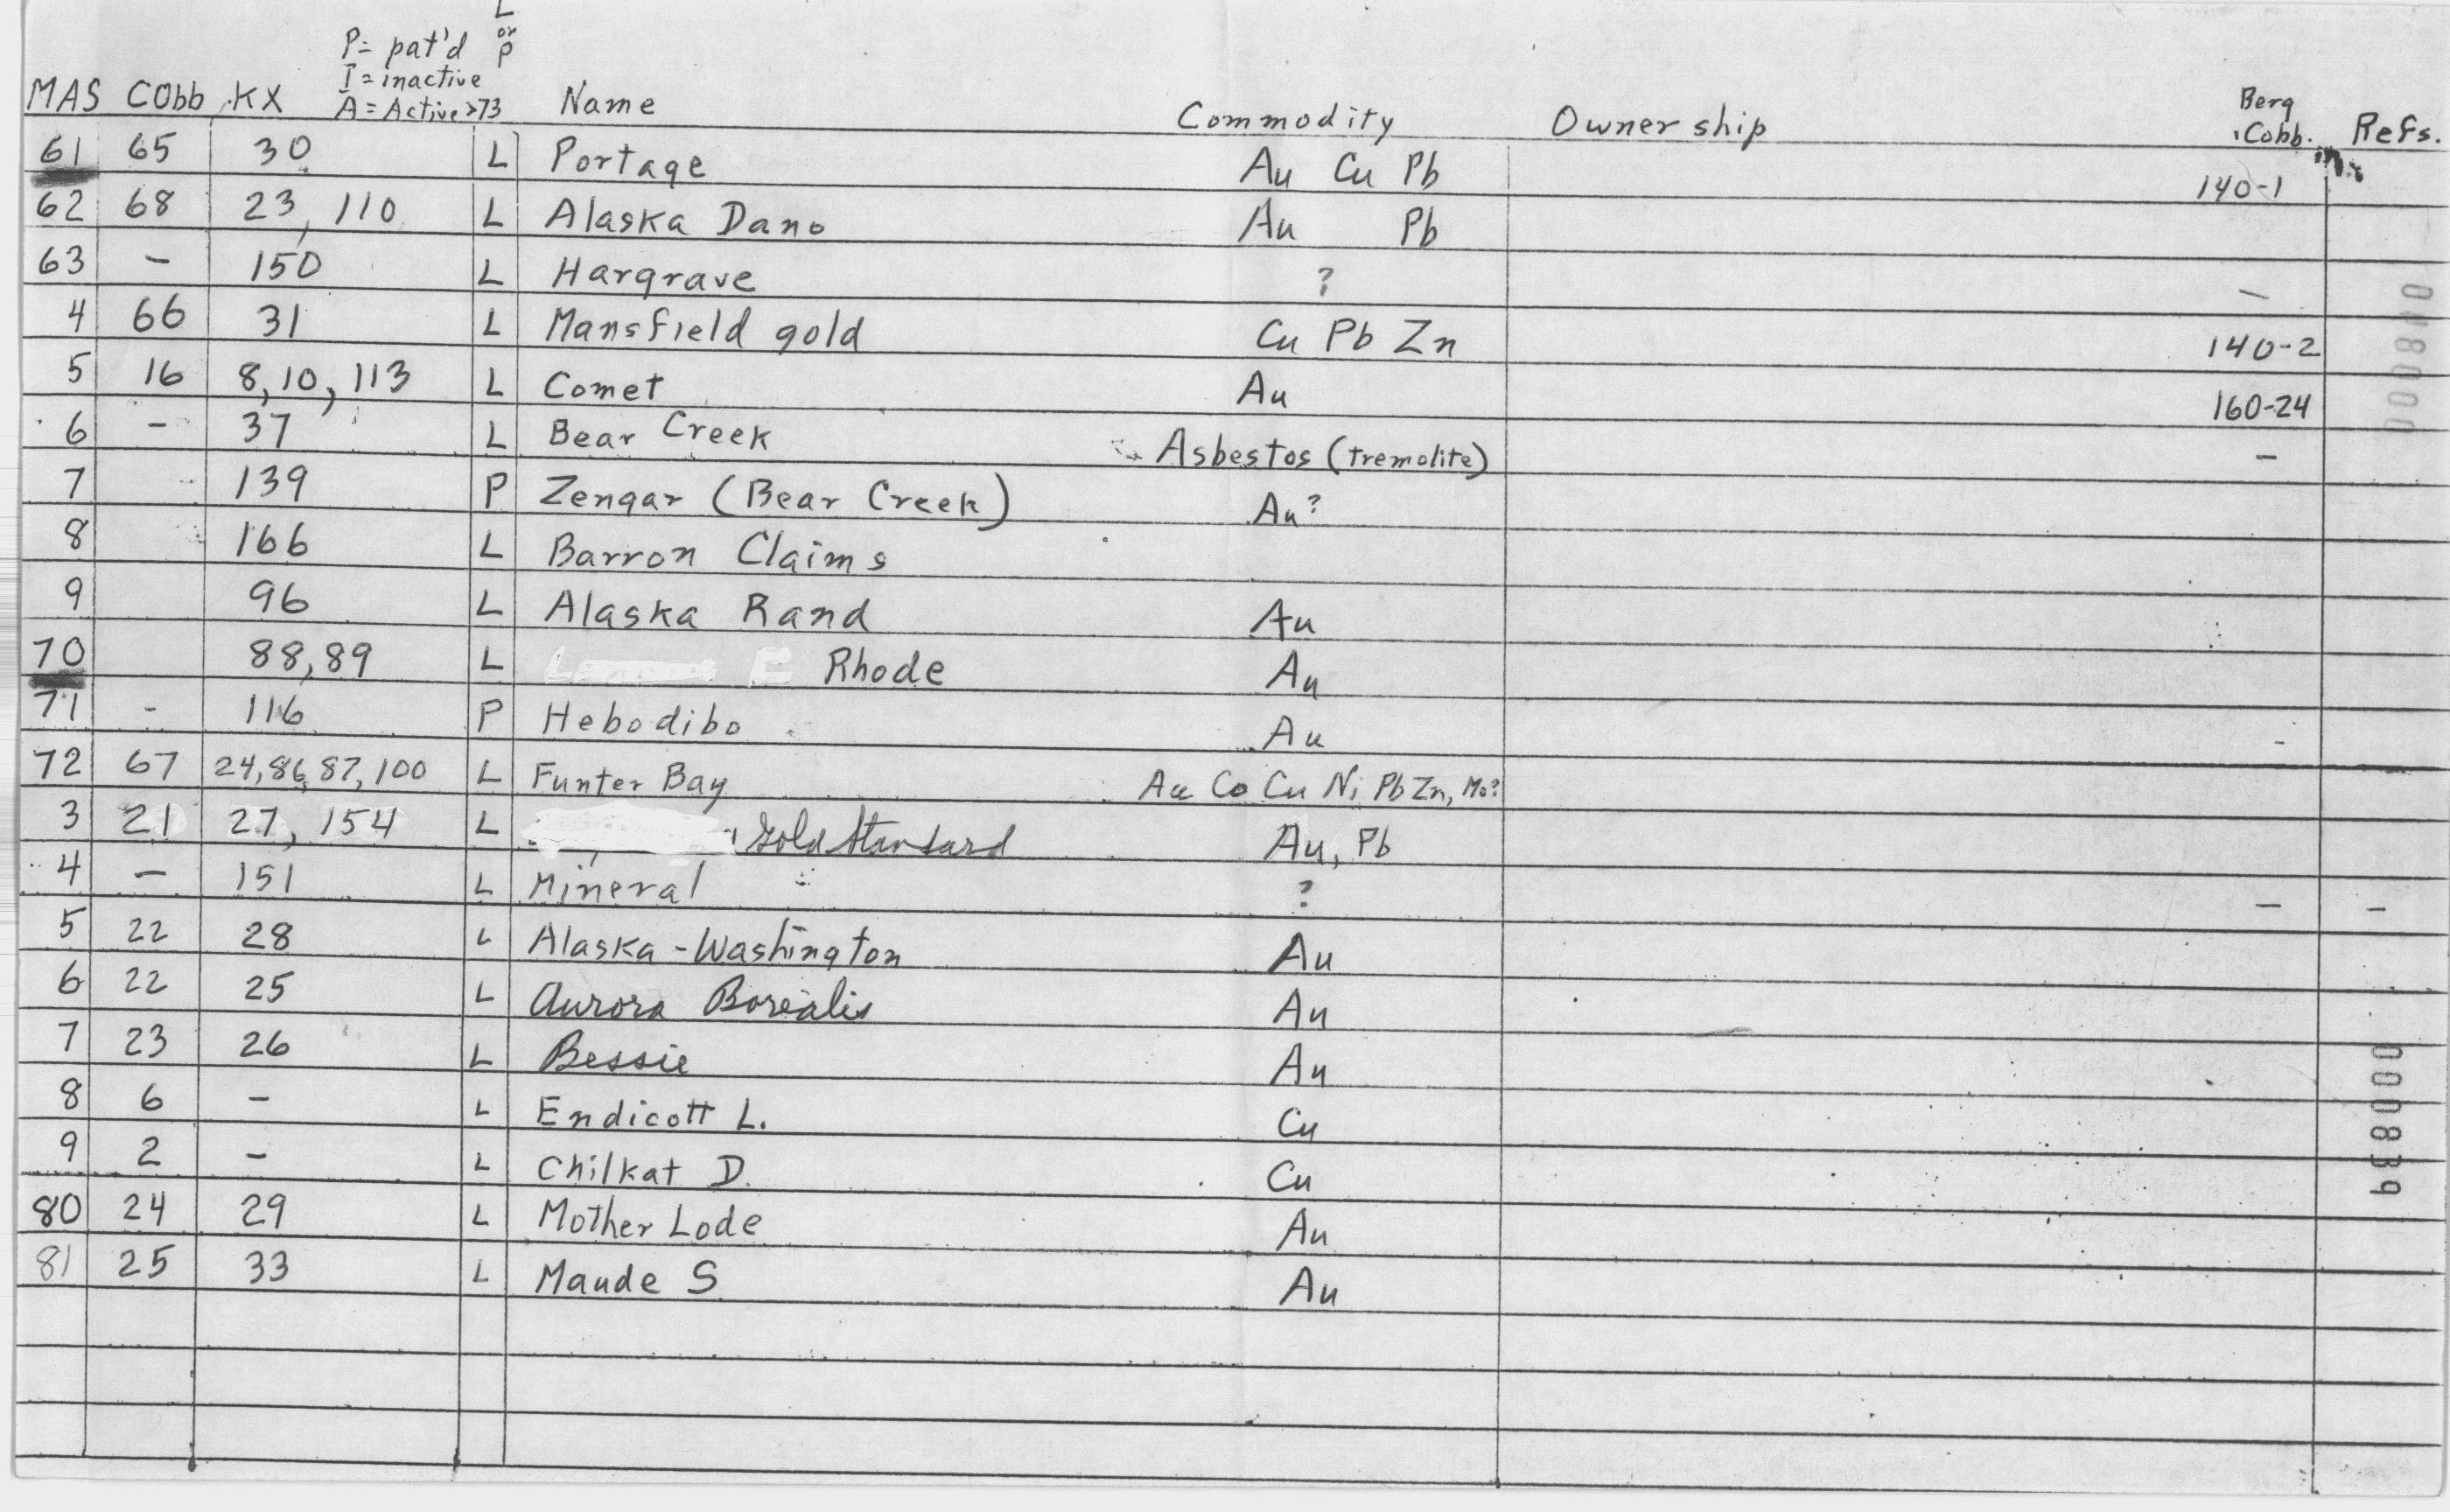 L
or
P
P= pat'd
I = inactive
A = Active >73
MAS Cobb KX Name Commodity Ownership Berg Cobb. Refs.
61 65 30 L Portage Au Cu Pb 140-1
62 68 23, 110 L Alaska Dano Au Pb
63 - 150 L Hargrave ? -
4 66 31 L Mansfield gold Cu Pb Zn 140-2
5 16 8, 10, 113 L Comet Au 160-24
6 - 37 L Bear Creek Asbestos (tremolite) -
7 139 P Zengar (Bear Creek) Au?
8 166 L Barron Claims
9 96 L Alaska Rand Au
70 88, 89 L Rhode Au
71 - 116 P Hebodibo Au -
72 67 24, 86, 87, 100 L Funter Bay Au Co Cu Ni Pb Zn, Mo?
3 21 27, 154 L Gold Standard Au, Pb
4 - 151 L Mineral ? - -
5 22 28 L Alaska-Washington Au
6 22 25 L Aurora Borealis Au
7 23 26 L Bessie Au
8 6 - L Endicott L. Cu
9 2 - L Chilkat D. Cu
80 24 29 L Mother Lode Au
81 25 33 L Maude S Au
000839